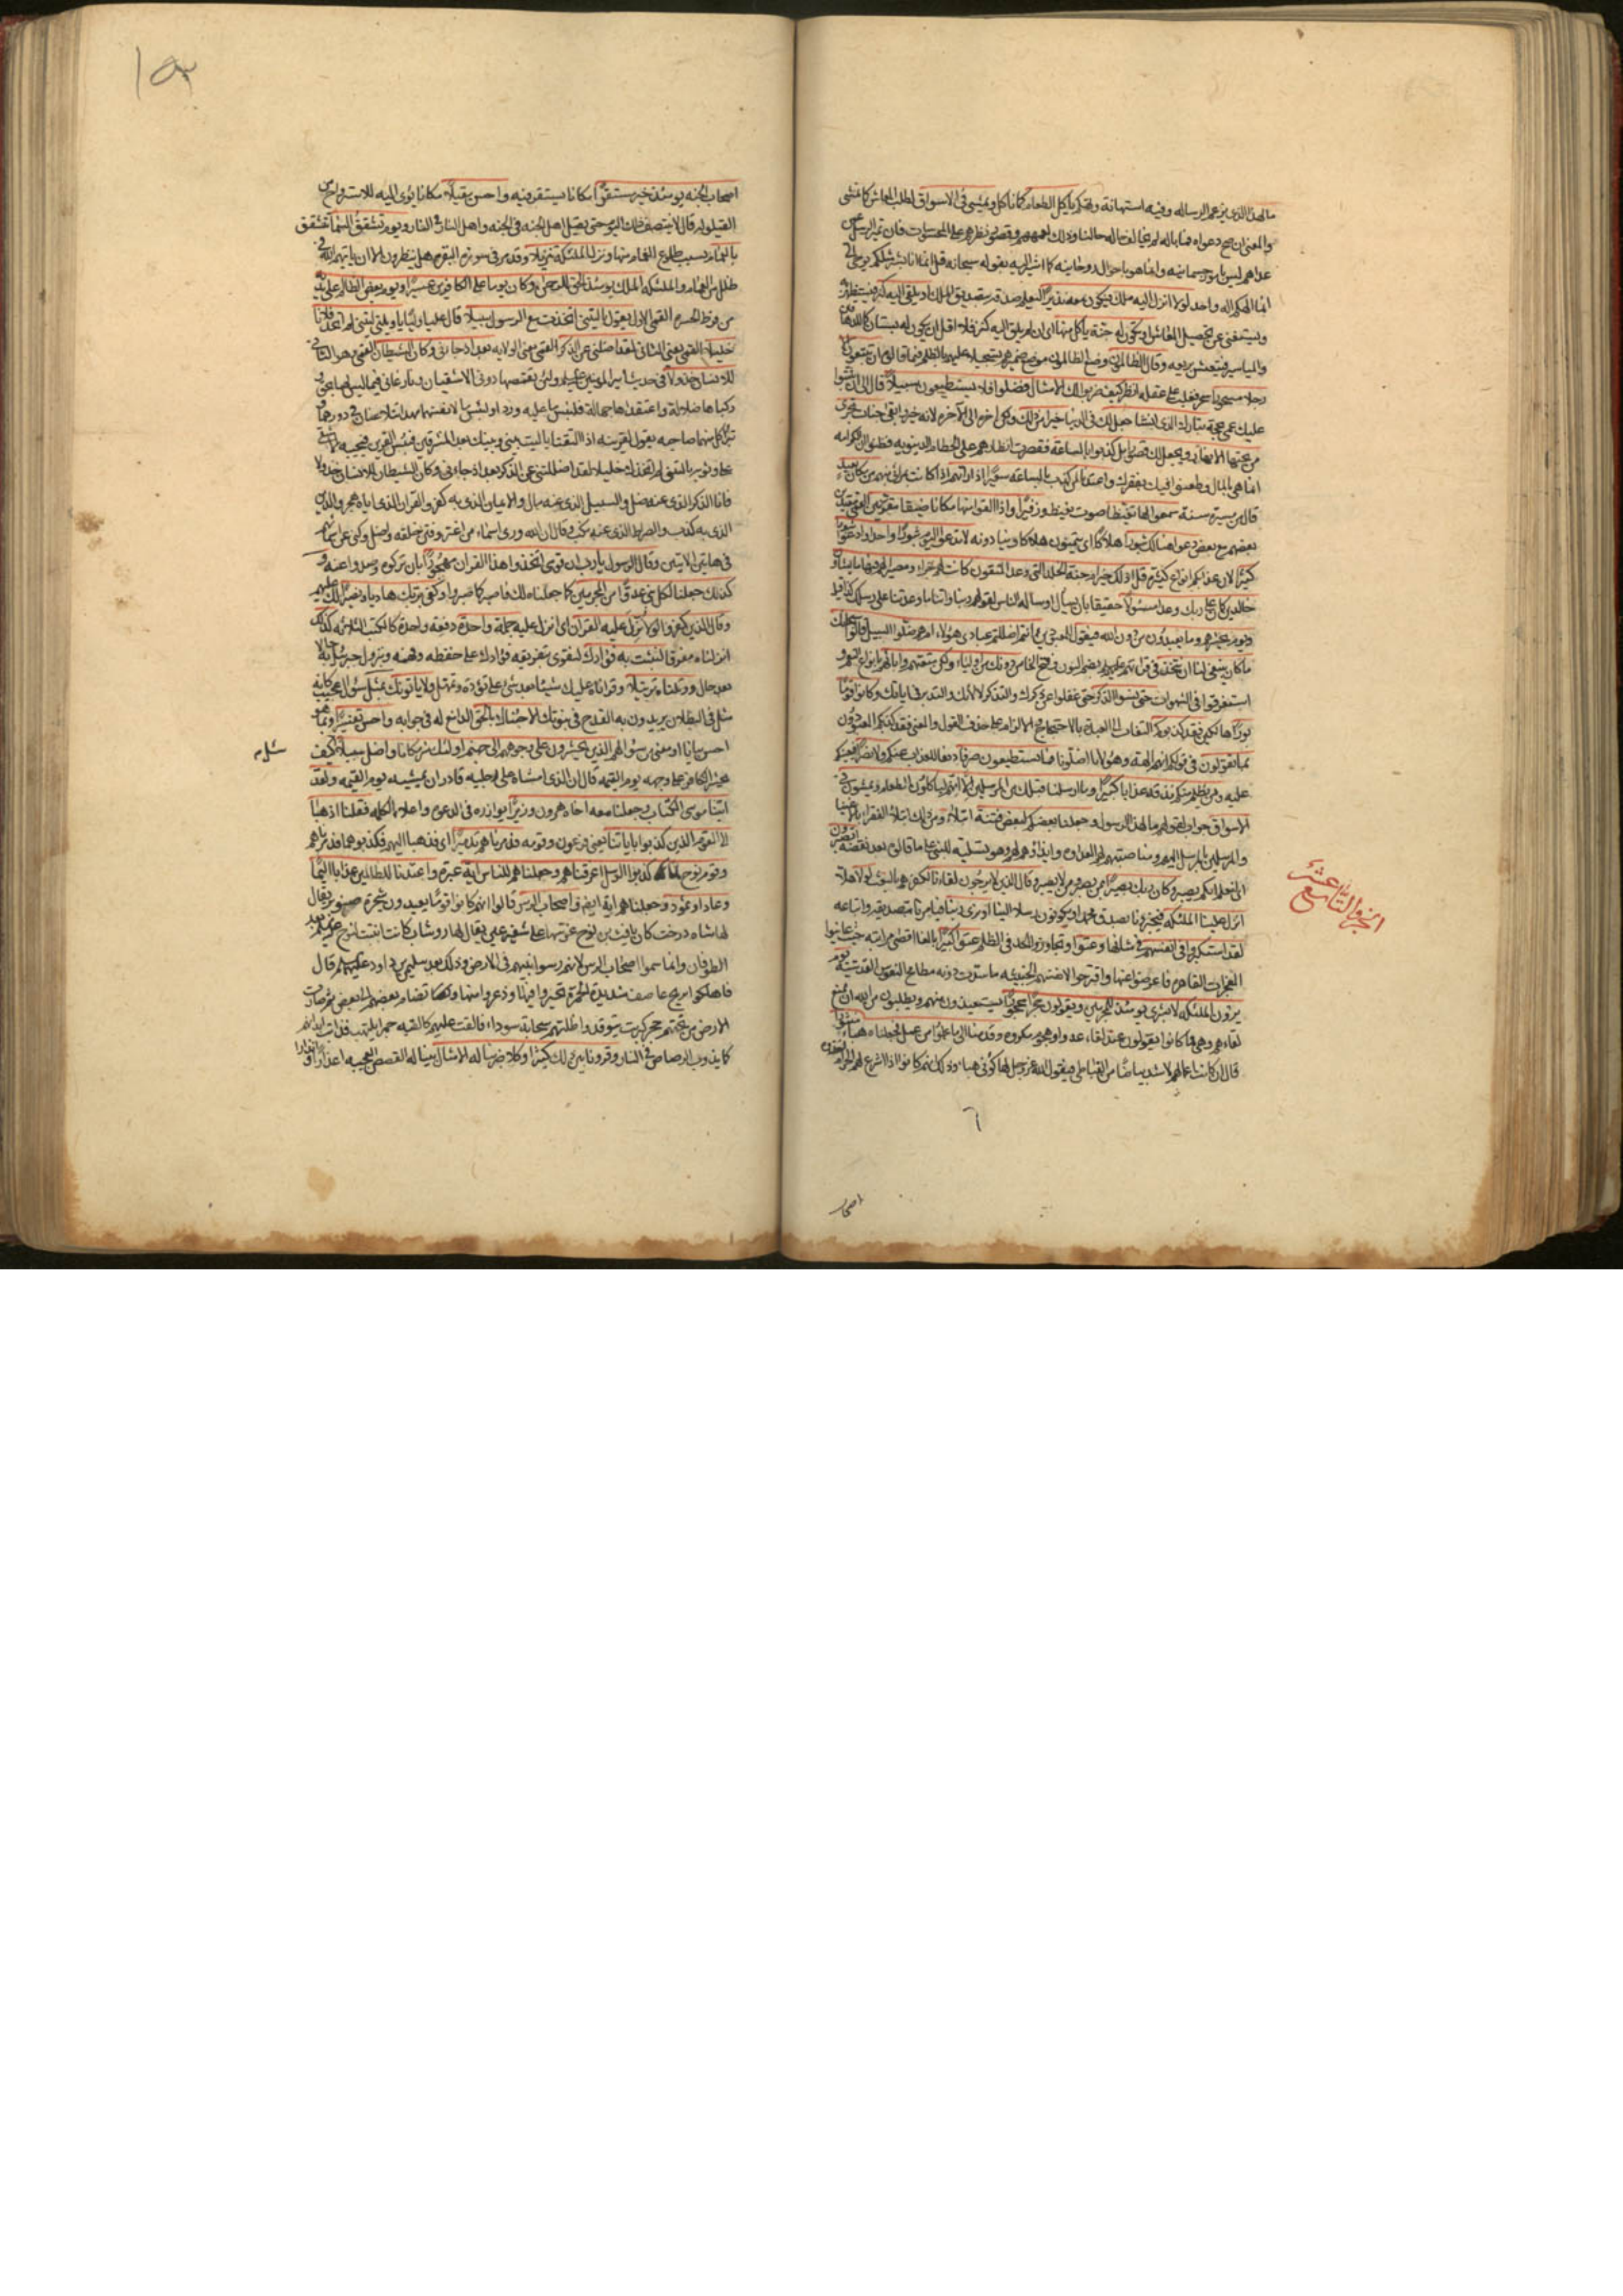 ما لهذا الذي يزعم الرسالة وفيه استهانة وتهكم يأكل الطعام كما نأكل ويمشي في الاسواق لطلب المعاش كما نمشي
والمعنى ان صح دعواه فما باله لم يخالف حاله حالنا وذلك لعمههم وقصور نظرهم على المحسوسات فان تميز الرسل عمن
عداهم ليس بامور جسمانية وانما هو باحوال روحانية كما اشير اليه بقوله سبحانه قل انما انا بشر مثلكم يوحى الي
انما الهكم اله واحد لولا انزل اليه ملك فيكون معه نذيرا ليعلم صدقه بتصديق الملك او يلقى اليه كنز فيستظهر به
ويستغني عن تحصيل المعاش او تكون له جنة يأكل منها اي ان لم يلق اليه كنز فلا اقل ان يكون له بستان كما للدهاقين
والمياسير فيتعيش بريعه وقال الظالمون وضع الظالمون موضع ضميرهم تسجيلا عليهم بالظلم فيما قالوه ان تتبعون الا
رجلا مسحورا سحر فغلب على عقله انظر كيف ضربوا لك الامثال فضلوا فلا يستطيعون سبيلا قال الى ان يثبتوا
عليك عمى بحجة تبارك الذي ان شاء جعل لك في الدنيا خيرا من ذلك ولكن اخره الى الآخرة لانه خير وابقى جنات تجري
من تحتها الانهار ويجعل لك قصورا بل كذبوا بالساعة فقصرت انظارهم على الحطام الدنيوية فظنوا ان الكرامة
انما هي بالمال وطعنوا فيك بفقرك واعتدنا لمن كذب بالساعة سعيرا اذا رأتهم اذا كانت بمرأى منهم من مكان بعيد
قال من مسيرة سنة سمعوا لها تغيظا صوت تغيظ وزفيرا واذا القوا منها مكانا ضيقا مقرنين
بعضهم مع بعض دعوا هنالك ثبورا هلاكا اي يتمنون هلاكا وينادونه لا تدعوا اليوم ثبورا واحدا وادعوا ثبورا
كثيرا لان عذابكم انواع كثيرة قل اذلك خير ام جنة الخلد التي وعد المتقون كانت لهم جزاء ومصيرا لهم فيها ما يشاؤن
خالدين كان على ربك وعدا مسئولا حقيقا بان يسأل او سأله الناس بقولهم ربنا وآتنا ما وعدتنا على رسلك
ويوم يحشرهم وما يعبدون من دون الله فيقول للمعبودين ءانتم اضللتم عبادي هؤلاء ام هم ضلوا السبيل قالوا سبحانك
ما كان ينبغي لنا ان نتخذ في قراءتهم عليهم السلام بضم النون وفتح الخاء من دونك من اولياء ولكن متعتهم واباءهم بانواع النعم و
استغرقوا في الشهوات حتى نسوا الذكر حتى غفلوا عن ذكرك والتذكر لآلائك والتدبر في آياتك وكانوا قوما
بورا هالكين فقد كذبوكم التفات الى العبدة بالاحتجاج والالزام على حذف القول والمعنى فقد كذبكم المعبودون
بما تقولون في قولكم انهم الهة وهؤلاء اضلونا فما تستطيعون صرفا دفعا للعذاب عنكم ولا نصرا فيعينكم
عليه ومن يظلم منكم نذقه عذابا كبيرا وما ارسلنا قبلك من المرسلين الا انهم ليأكلون الطعام ويمشون في
الاسواق جواب لقولهم ما لهذا الرسول وجعلنا بعضكم لبعض فتنة ابتلاء ومن ذلك ابتلاء الفقراء بالاغنياء
والمرسلين بالمرسل اليهم ومناصبتهم لهم العداوة وايذاؤهم لهم وهو تسلية للنبي على ما قالوه بعد نقضه اتصبرون
اي لنعلم ايكم يصبر وكان ربك بصيرا بمن يصبر ومن لا يصبر وقال الذين لا يرجون لقاءنا لكفرهم بالبعث لولا هلا
انزل علينا الملئكة فيخبرونا بصدق محمد او يكونون رسلا الينا او نرى ربنا فيأمرنا بتصديقه واتباعه
لقد استكبروا في انفسهم في شأنها وعتوا وتجاوزوا الحد في الظلم عتوا كبيرا بالغا اقصى مراتبه حيث عاينوا
المعجزات القاهرة فاعرضوا عنها واقترحوا لانفسهم الخبيثة ما سدت دونه مطامح النفوس القدسية يوم
يرون الملئكة لا بشرى يومئذ للمجرمين ويقولون حجرا محجورا يستعيذون منهم ويطلبون من الله ان يمنع
لقاءهم وهي مما كانوا يقولون عند لقاء عدو او هجوم مكروه وقدمنا الى ما عملوا من عمل فجعلناه هباء منثورا
قال ان كانت اعمالهم لاشد بياضا من القباطي فيقول الله عز وجل لها كوني هباء وذلك انهم كانوا اذا شرع لهم الحرام اخذوه
الجزء التاسع عشر
٦
اصحاب
١٥٣
اصحاب الجنة يومئذ خير مستقرا مكانا يستقر فيه واحسن مقيلا مكانا يؤوى اليه للاسترواح من
القيلولة قال لا ينتصف ذلك اليوم حتى يقيل اهل الجنة في الجنة واهل النار في النار ويوم تشقق السماء تتشقق
بالغمام بسبب طلوع الغمام منها ونزل الملئكة تنزيلا وقد مر في سورة البقرة هل ينظرون الا ان يأتيهم الله في
ظلل من الغمام والملئكة الملك يومئذ الحق للرحمن وكان يوما على الكافرين عسيرا ويوم يعض الظالم على يديه
من فرط الحسرة القمي الاول يقول يا ليتني اتخذت مع الرسول سبيلا قال عليا وليا يا ويلتى ليتني لم اتخذ فلانا
خليلا القمي يعني الثاني لقد اضلني عن الذكر القمي يعني الولاية بعد اذ جاءني وكان الشيطان القمي وهو الثاني
للانسان خذولا في حديث امير المؤمنين عليه السلام ولئن تقمصها دوني الاشقيان ونازعاني فيما ليس لهما بحق و
ركباها ضلالة واعتقداها جهالة فلبئس ما عليه وردا ولبئس ما لانفسهما مهدا يتلاعنان في دورهما و
تبرأ كل منهما من صاحبه يقول لقرينه اذا التقيا يا ليت بيني وبينك بعد المشرقين فبئس القرين فيجيبه الاشقى
على وثوبة يا ليتني لم اتخذك خليلا لقد اضللتني عن الذكر بعد اذ جاءني وكان الشيطان للانسان خذولا
فانا الذكر الذي عنه ضل والسبيل الذي عنه مال والايمان الذي به كفر والقران الذي اياه هجر والدين
الذي به كذب والصراط الذي عنه نكب وقال ان الله ورى اسماء من اغتر وفتن خلقه وضل وكنى عن اسمائهم
في هاتين الآيتين وقال الرسول يا رب ان قومي اتخذوا هذا القران مهجورا بان تركوه وصدوا عنه و
كذلك جعلنا لكل نبي عدوا من المجرمين كما جعلناه لك فاصبر كما صبروا وكفى بربك هاديا ونصيرا لك عليهم
وقال الذين كفروا لولا نزل عليه القرآن اي انزل عليه جملة واحدة دفعة واحدة كالكتب الثلاثة كذلك
انزلناه مفرقا لنثبت به فؤادك لنقوي بتفريقه فؤادك على حفظه وفهمه وبنزول جبرئيل به حالا
بعد حال ورتلناه ترتيلا وقرأناه عليك شيئا بعد شيء على تؤدة وتمهل ولا يأتونك بمثل سؤال عجيب كانه
مثل في البطلان يريدون به القدح في نبوتك الا جئناك بالحق الدامغ له في جوابه واحسن تفسيرا وبما هو
احسن بيانا او معنى من سؤالهم الذين يحشرون على وجوههم الى جهنم اولئك شر مكانا واضل سبيلا كيف
سئل م
يحشر الكافر على وجهه يوم القيمة قال ان الذي امشاه على رجليه قادر ان يمشيه يوم القيمة ولقد
اتينا موسى الكتاب وجعلنا معه اخاه هرون وزيرا يوازره في الدعوة واعلاء الكلمة فقلنا اذهبا
الى القوم الذين كذبوا باياتنا يعني فرعون وقومه فدمرناهم تدميرا اي فذهبا اليهم فكذبوهما فدمرناهم
وقوم نوح لما كذبوا الرسل اغرقناهم وجعلناهم للناس اية عبرة واعتدنا للظالمين عذابا اليما
وعادا وثمود وجعلناهم اية ايضا واصحاب الرس قالوا انهم كانوا قوما يعبدون شجرة صنوبر يقال
لها شاه درخت كان يافث بن نوح غرسها على شفير عين يقال لها روشاب كانت انبتت لنوح عليه السلام بعد
الطوفان وانما سموا اصحاب الرس لانهم رسوا نبيهم في الارض وذلك بعد سليمن بن داود عليهما السلم قال
فاهلكوا بريح عاصف شديدة الحمرة تحيروا فيها وذعروا منها وتضام بعضهم الى بعض ثم صارت
الارض من تحتهم حجر كبريت يتوقد واظلتهم سحابة سوداء فالقت عليهم كالقبة جمرا يلتهب فذابت ابدانهم
كما يذوب الرصاص في النار وقرونا بين ذلك كثيرا وكلا ضربنا له الامثال بينا له القصص العجيبة اعذارا وانذارا